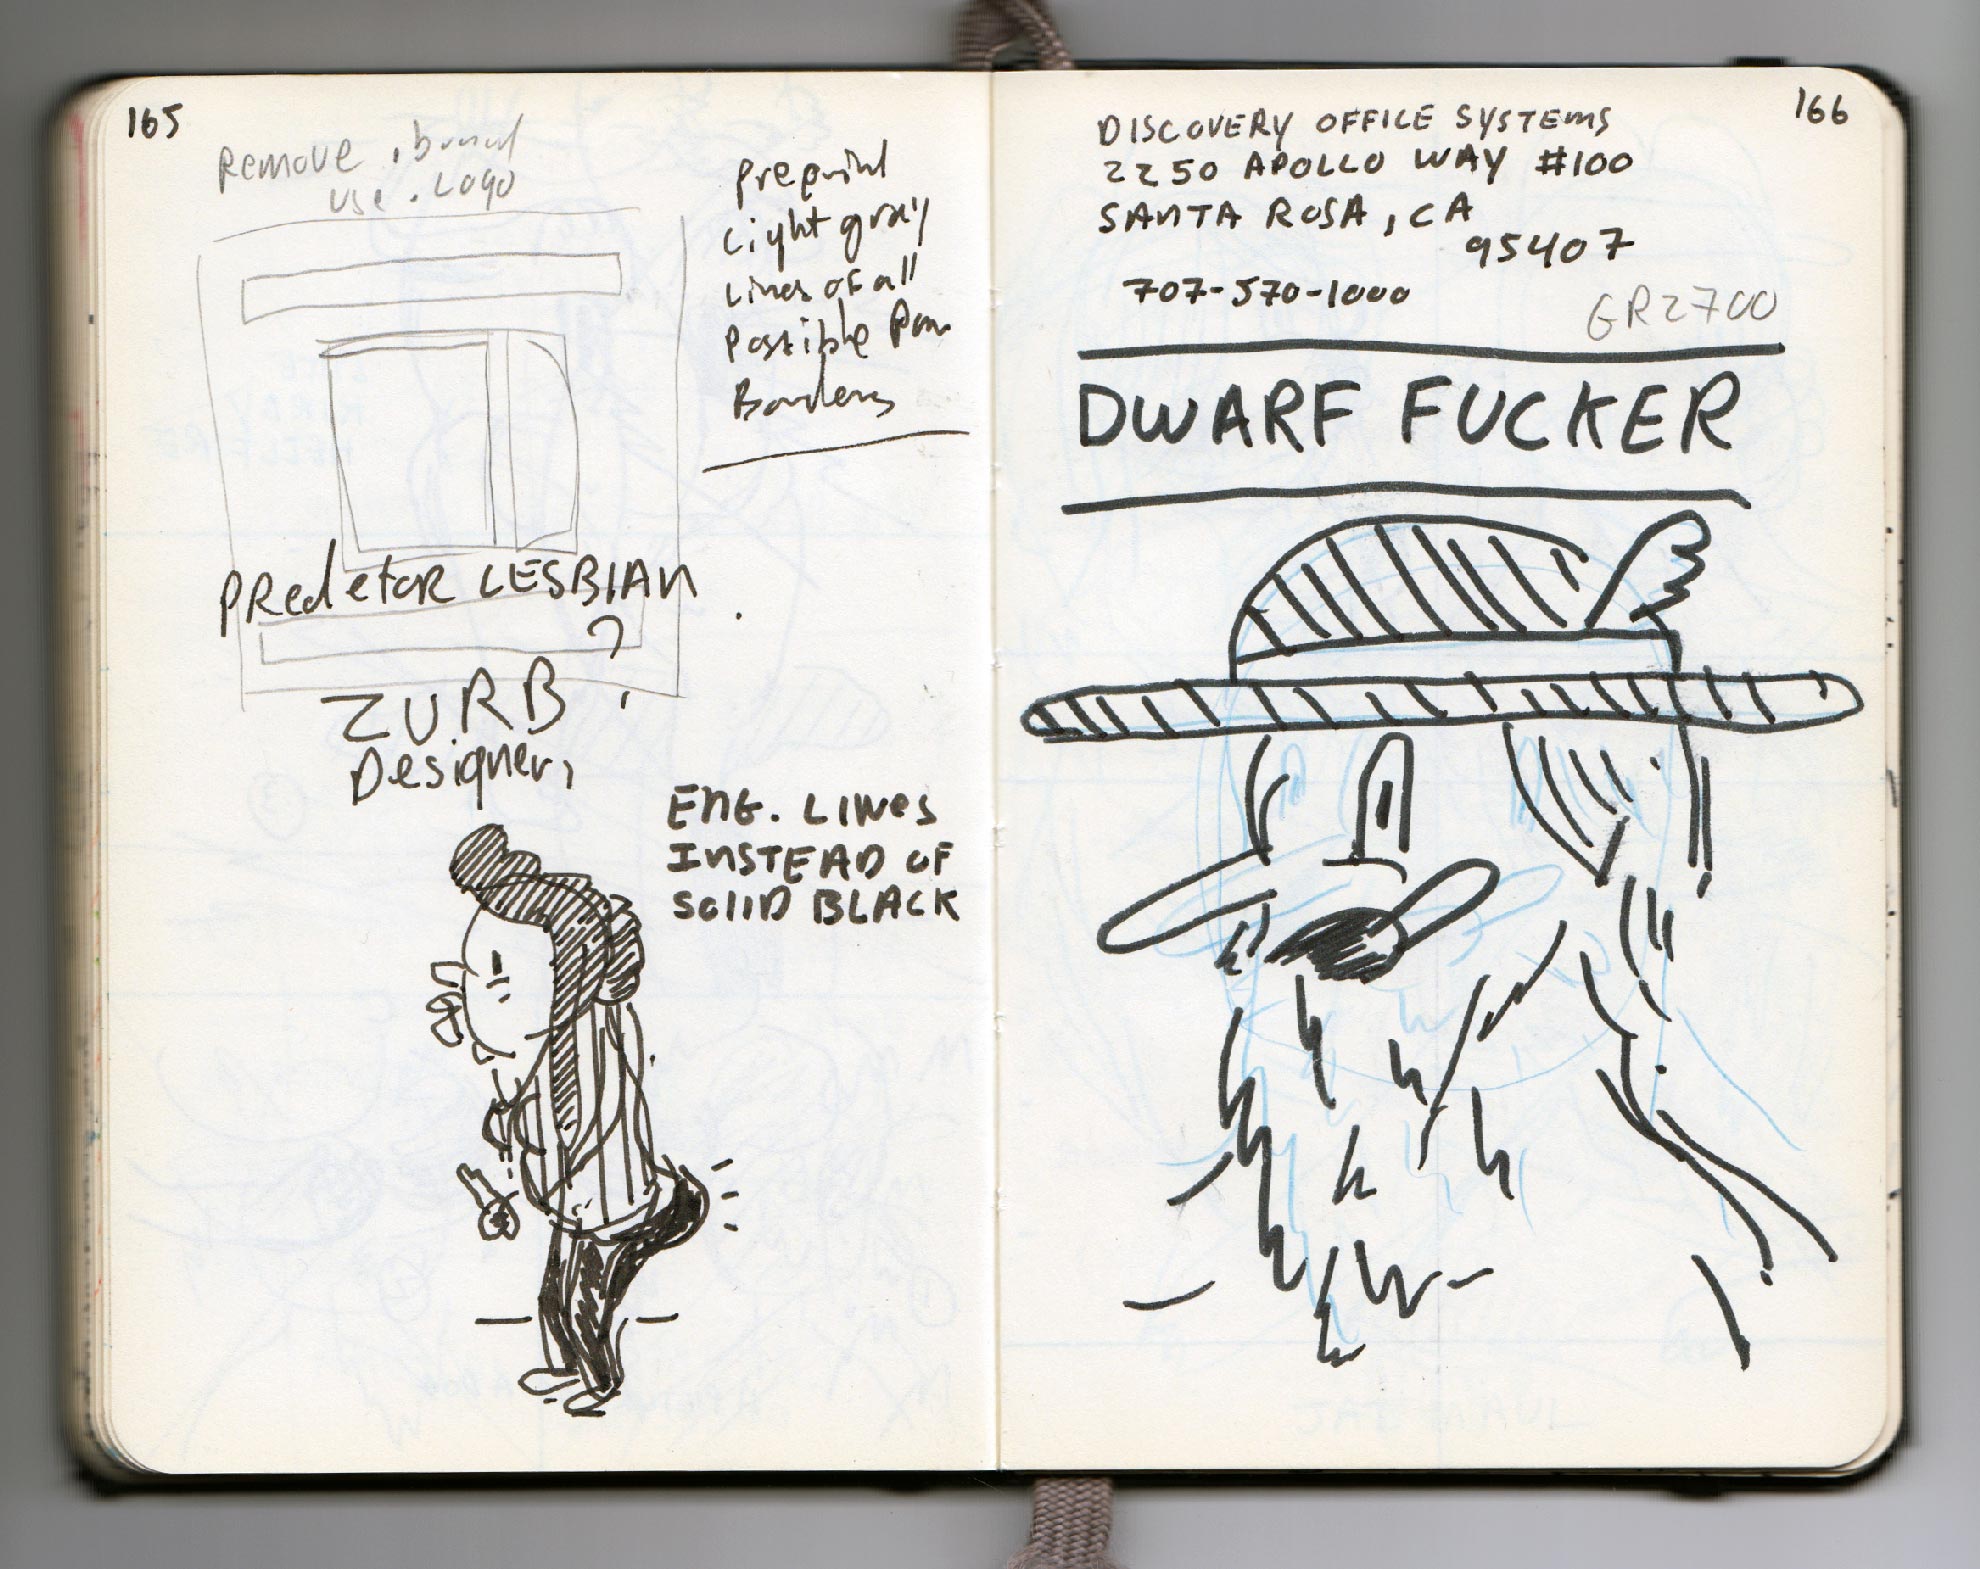 165
Remove .brand
use .Logo
preprint
Light gray
Lines of all
Possible Pan
Borders
PRedetor LESBIAN
?
ZURB
Designer,
ENG. LINES
INSTEAD OF
SOLID BLACK
166
DISCOVERY OFFICE SYSTEMS
2250 APOLLO WAY #100
SANTA ROSA, CA
95407
707-570-1000
GR2700
DWARF FUCKER